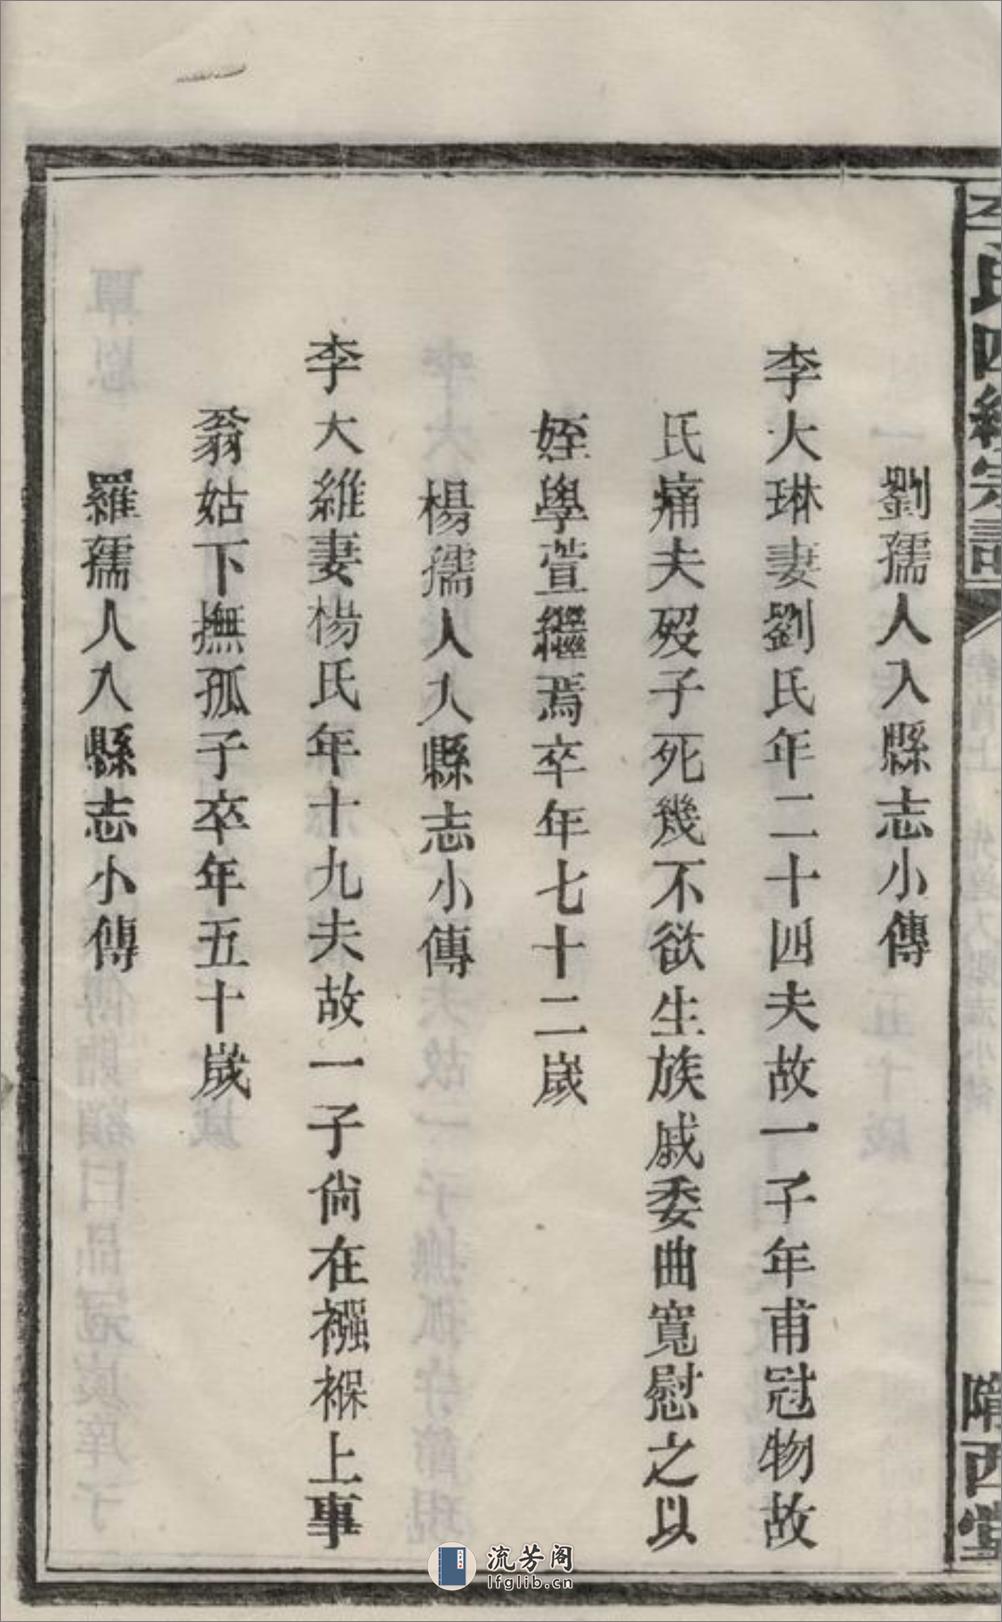 李氏四維宗譜
隴西堂
劉孺人入縣志小傳
李大琳妻劉氏年二十四夫故一子年甫冠物故
氏痛夫歿子死幾不欲生族戚委曲寬慰之以
姪學萱繼焉卒年七十二歲
楊孺人入縣志小傳
李大維妻楊氏年十九夫故一子尙在襁褓上事
翁姑下撫孤子卒年五十歲
羅孺人入縣志小傳
流芳阁
lfglib.cn